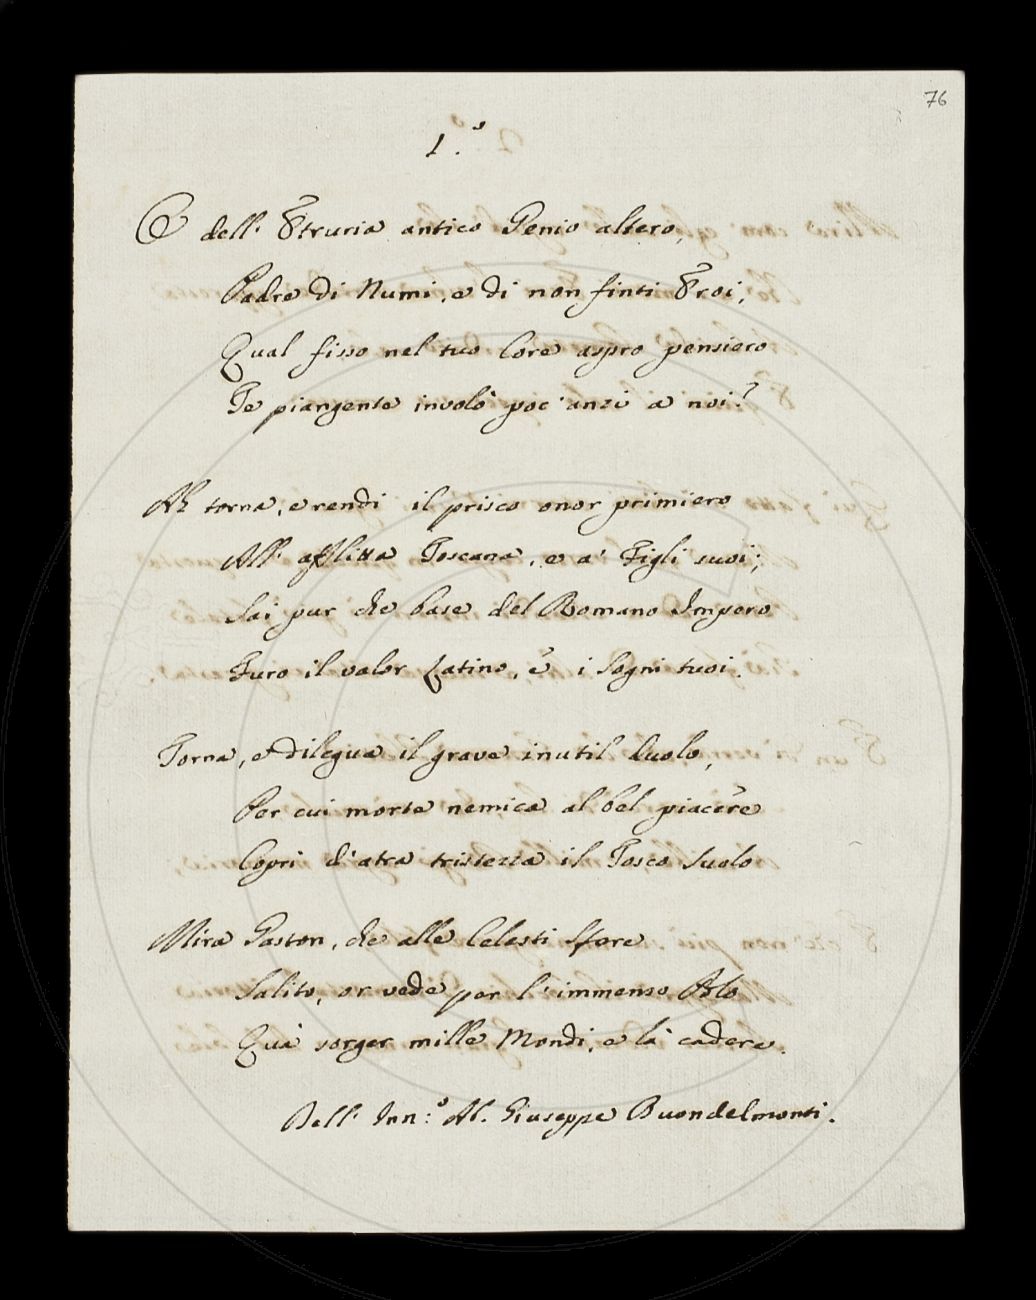 76
1.º
O dell' Etruria antico Genio altero,
Padre di Numi, e di non finti Eroi,
Qual fisso nel tuo Core aspro pensiero
Te piangente involò poc'anzi a noi?
Ah torna, e rendi il prisco onor primiero
All' afflitta Toscana, e a' Figli suoi;
Sai pur che base del Romano Impero
Furo il valor Latino, e i Sogni tuoi.
Torna, e dilegua il grave inutil duolo,
Per cui morte nemica al bel piacere
Coprì d'atra tristezza il Tosco Suolo
Mira Gaston, che alle Celesti Sfere
Salito, or vede per l'immenso Polo
Quà sorger mille Mondi, e là cadere.
Dell' Ab. Giuseppe Buondelmonti.